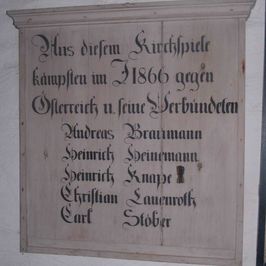 Aus diesem Kirchspiele
kämpften im J 1866 gegen
Österreich u. seine Verbündeten
Andreas Braumann
Heinrich Heinemann
Heinrich Knape
Christian Lauenroth
Carl Stöber